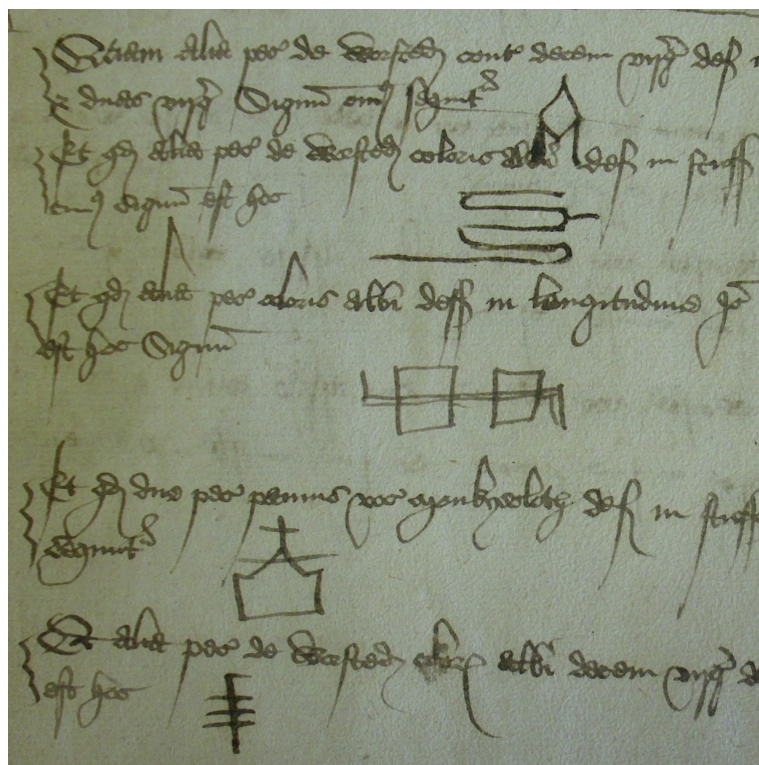 Etiam alia pec de Worsted cont decem virg def
& duas virg Signu sequnt
Et qd alia pec de Worsted coloris albi def in stuff
cuius signu est hoc
Et qd alia pec coloris albi deff in longitudine
est hoc Signu
Et qd due pec pannus voc Monkyscloth def in stuff
sequnt
Et alia pec de Worsted color albi decem virg
est hoc